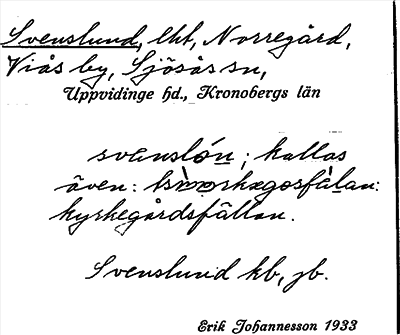 Svenslund, lht, Norregård,
Viås by, Sjösås sn,
Uppvidinge hd., Kronobergs län
svensloǹ; kallas
även:
kyrkegårdsfällan.
Svenslund kb, jb.
Erik Johannesson 1933